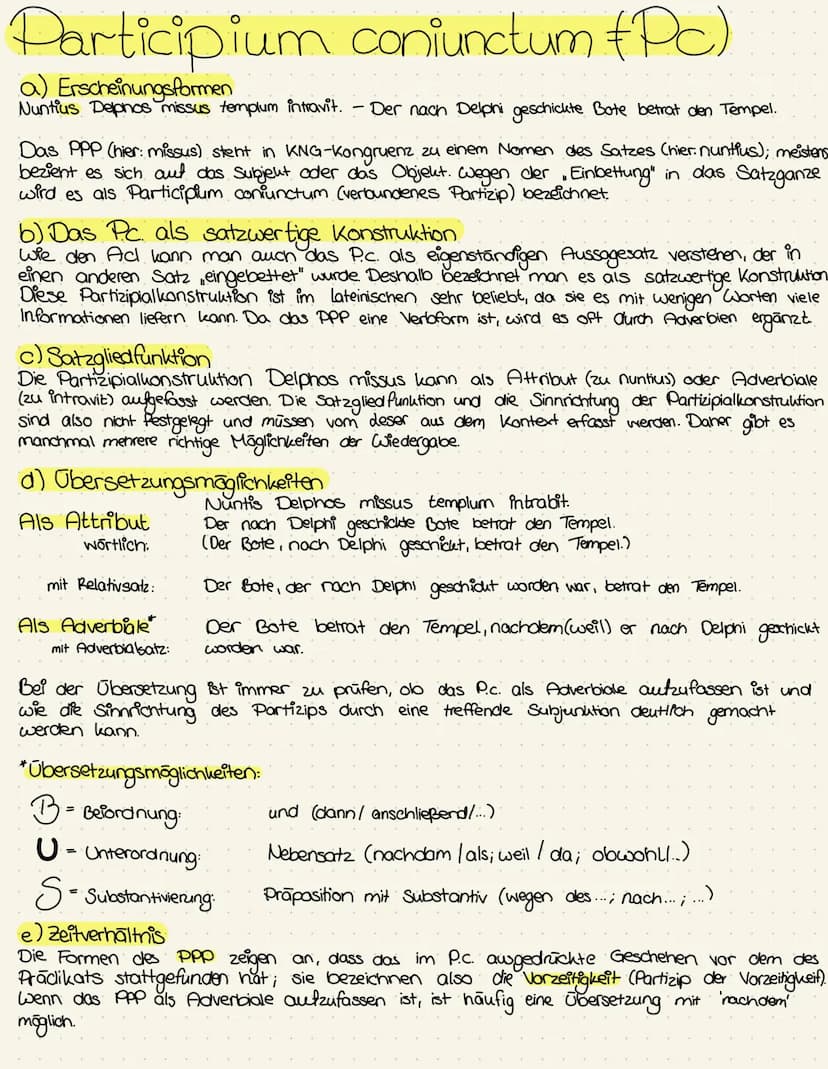 Participium coniunctum (Pc)
a) Erscheinungsformen
Nuntius Delphos missus templum intravit. – Der nach Delphi geschickte Bote betrat den Tempel.
Das PPP (hier: missus) steht in KNG-Kongruenz zu einem Nomen des Satzes (hier: nuntius); meistens
bezieht es sich auf das Subjekt oder das Objekt. Wegen der „Einbettung" in das Satzganze
wird es als Participium coniunctum (verbundenes Partizip) bezeichnet.
b) Das P.c. als satzwertige Konstruktion
Wie den AcI kann man auch das P.c. als eigenständigen Aussagesatz verstehen, der in
einen anderen Satz „eingebettet" wurde. Deshalb bezeichnet man es als satzwertige Konstruktion
Diese Partizipialkonstruktion ist im lateinischen sehr beliebt, da sie es mit wenigen Worten viele
Informationen liefern kann. Da das PPP eine Verbform ist, wird es oft durch Adverbien ergänzt
c) Satzgliedfunktion
Die Partizipialkonstruktion Delphos missus kann als Attribut (zu nuntius) oder Adverbiale
(zu intravit) aufgefasst werden. Die Satzgliedfunktion und die Sinnrichtung der Partizipialkonstruktion
sind also nicht festgelegt und müssen vom Leser aus dem Kontext erfasst werden. Daher gibt es
manchmal mehrere richtige Möglichkeiten der Wiedergabe.
d) Übersetzungsmöglichkeiten
Nuntis Delphos missus templum intrabit.
Als Attribut Der nach Delphi geschickte Bote betrat den Tempel.
wörtlich: (Der Bote, nach Delphi geschickt, betrat den Tempel.)
mit Relativsatz: Der Bote, der nach Delphi geschickt worden war, betrat den Tempel.
Als Adverbiale* Der Bote betrat den Tempel, nachdem (weil) er nach Delphi geschickt
mit Adverbialsatz: worden war.
Bei der Übersetzung ist immer zu prüfen, ob das P.c. als Adverbiale aufzufassen ist und
wie die Sinnrichtung des Partizips durch eine treffende Subjunktion deutlich gemacht
werden kann.
*Übersetzungsmöglichkeiten:
B = Beiordnung: und (dann/ anschließend/...)
U = Unterordnung: Nebensatz (nachdem / als; weil / da; obwohl/...)
S = Substantivierung: Präposition mit Substantiv (wegen des...; nach...; ...)
e) Zeitverhältnis
Die Formen des PPP zeigen an, dass das im P.c. ausgedrückte Geschehen vor dem des
Prädikats stattgefunden hat; sie bezeichnen also die Vorzeitigkeit (Partizip der Vorzeitigkeit).
Wenn das PPP als Adverbiale aufzufassen ist, ist häufig eine Übersetzung mit 'nachdem'
möglich.